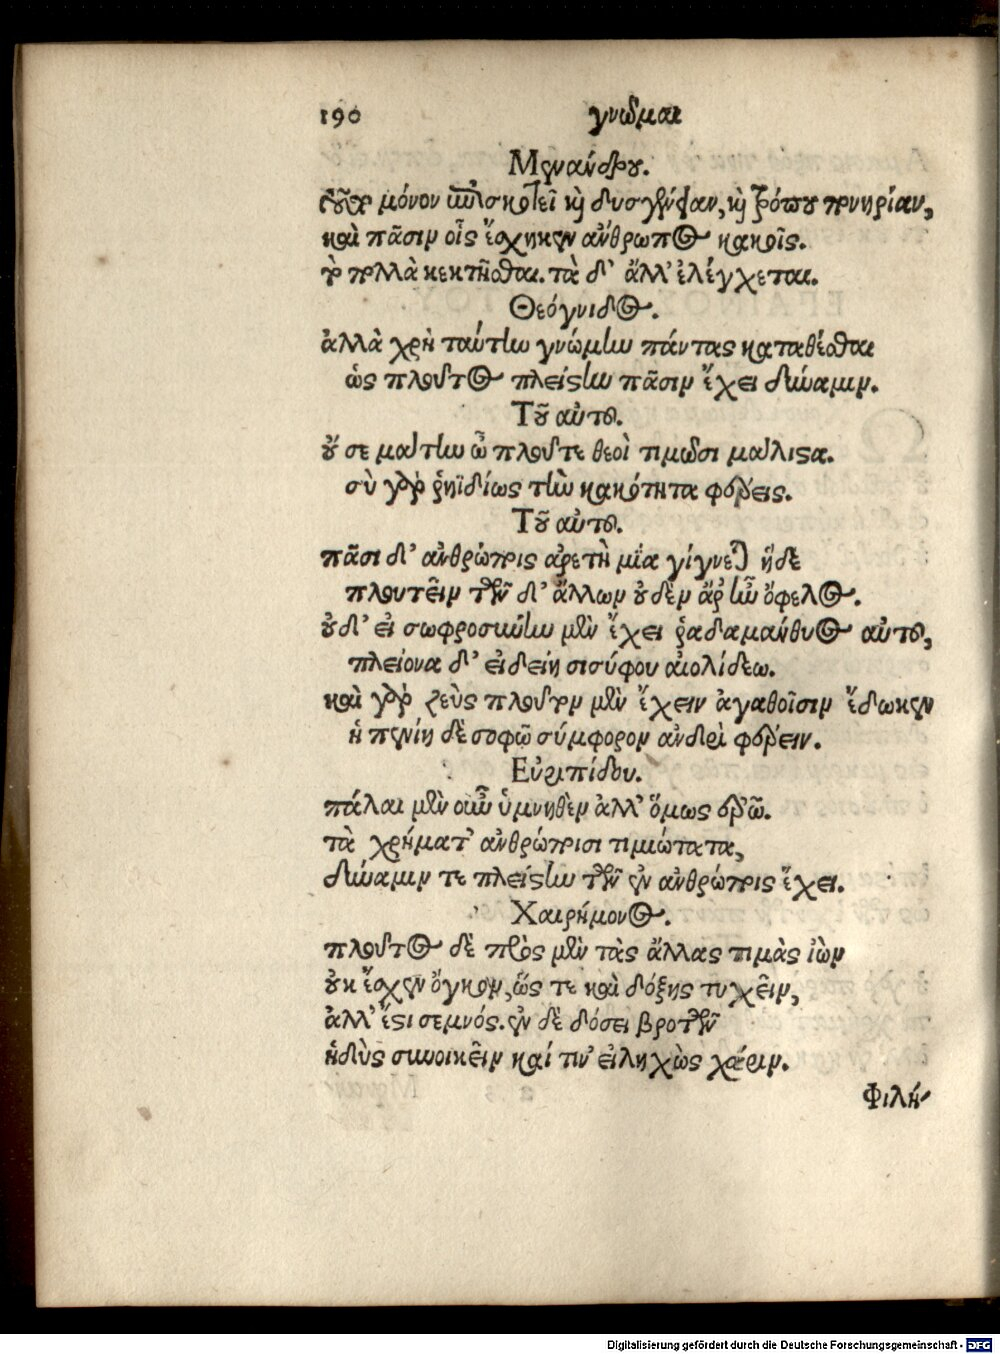 190 γνῶμαι
Μενάνδρου.
ἓν μόνον ἐπισκοτεῖ καὶ δυσγένειαν, καὶ τρόπου πονηρίαν,
καὶ πᾶσιν οἷς ἔσχηκεν ἄνθρωπος κακοῖς.
τὸ πολλὰ κεκτῆσθαι. τὰ δ' ἄλλ' ἐλέγχεται.
Θεόγνιδος.
ἀλλὰ χρὴ ταύτην γνώμην πάντας καταθέσθαι
ὡς πλοῦτος πλείστην πᾶσιν ἔχει δύναμιν.
Τοῦ αὐτοῦ.
οὔ σε μάτην ὦ πλοῦτε θεοὶ τιμῶσι μάλιστα.
σὺ γὰρ ῥηϊδίως τὴν κακότητα φέρεις.
Τοῦ αὐτοῦ.
πᾶσι δ' ἀνθρώποις ἀρετὴ μία γίγνεται ἥδε
πλουτεῖν τῶν δ' ἄλλων οὐδὲν ἄρ ἦν ὄφελος.
οὐδ' εἰ σωφροσύνην μὲν ἔχει ῥαδαμάνθυος αὐτοῦ,
πλείονα δ' εἰδείη σισύφου αἰολίδεω.
καὶ γὰρ ζεὺς πλοῦτον μὲν ἔχειν ἀγαθοῖσιν ἔδωκεν
ἡ πενίη δὲ σοφῷ σύμφορον ἀνδρὶ φέρειν.
Εὐριπίδου.
πάλαι μὲν οὖν ὑμνηθὲν ἀλλ' ὅμως ἐρῶ.
τὰ χρήματ' ἀνθρώποισι τιμιώτατα,
δύναμιν τε πλείστην τῶν ἐν ἀνθρώποις ἔχει.
Χαιρήμονος.
πλοῦτος δὲ πρὸς μὲν τὰς ἄλλας τιμὰς ἰὼν
οὐκ ἔσχεν ὄγκον, ὥς τε καὶ δόξης τυχεῖν,
ἀλλ' ἔστι σεμνός. ἐν δὲ δόσει βροτῶν
ἡδὺς συνοικεῖν καί τιν' εἰληχὼς χάριν.
Φιλή-
Digitalisierung gefördert durch die Deutsche Forschungsgemeinschaft - DFG